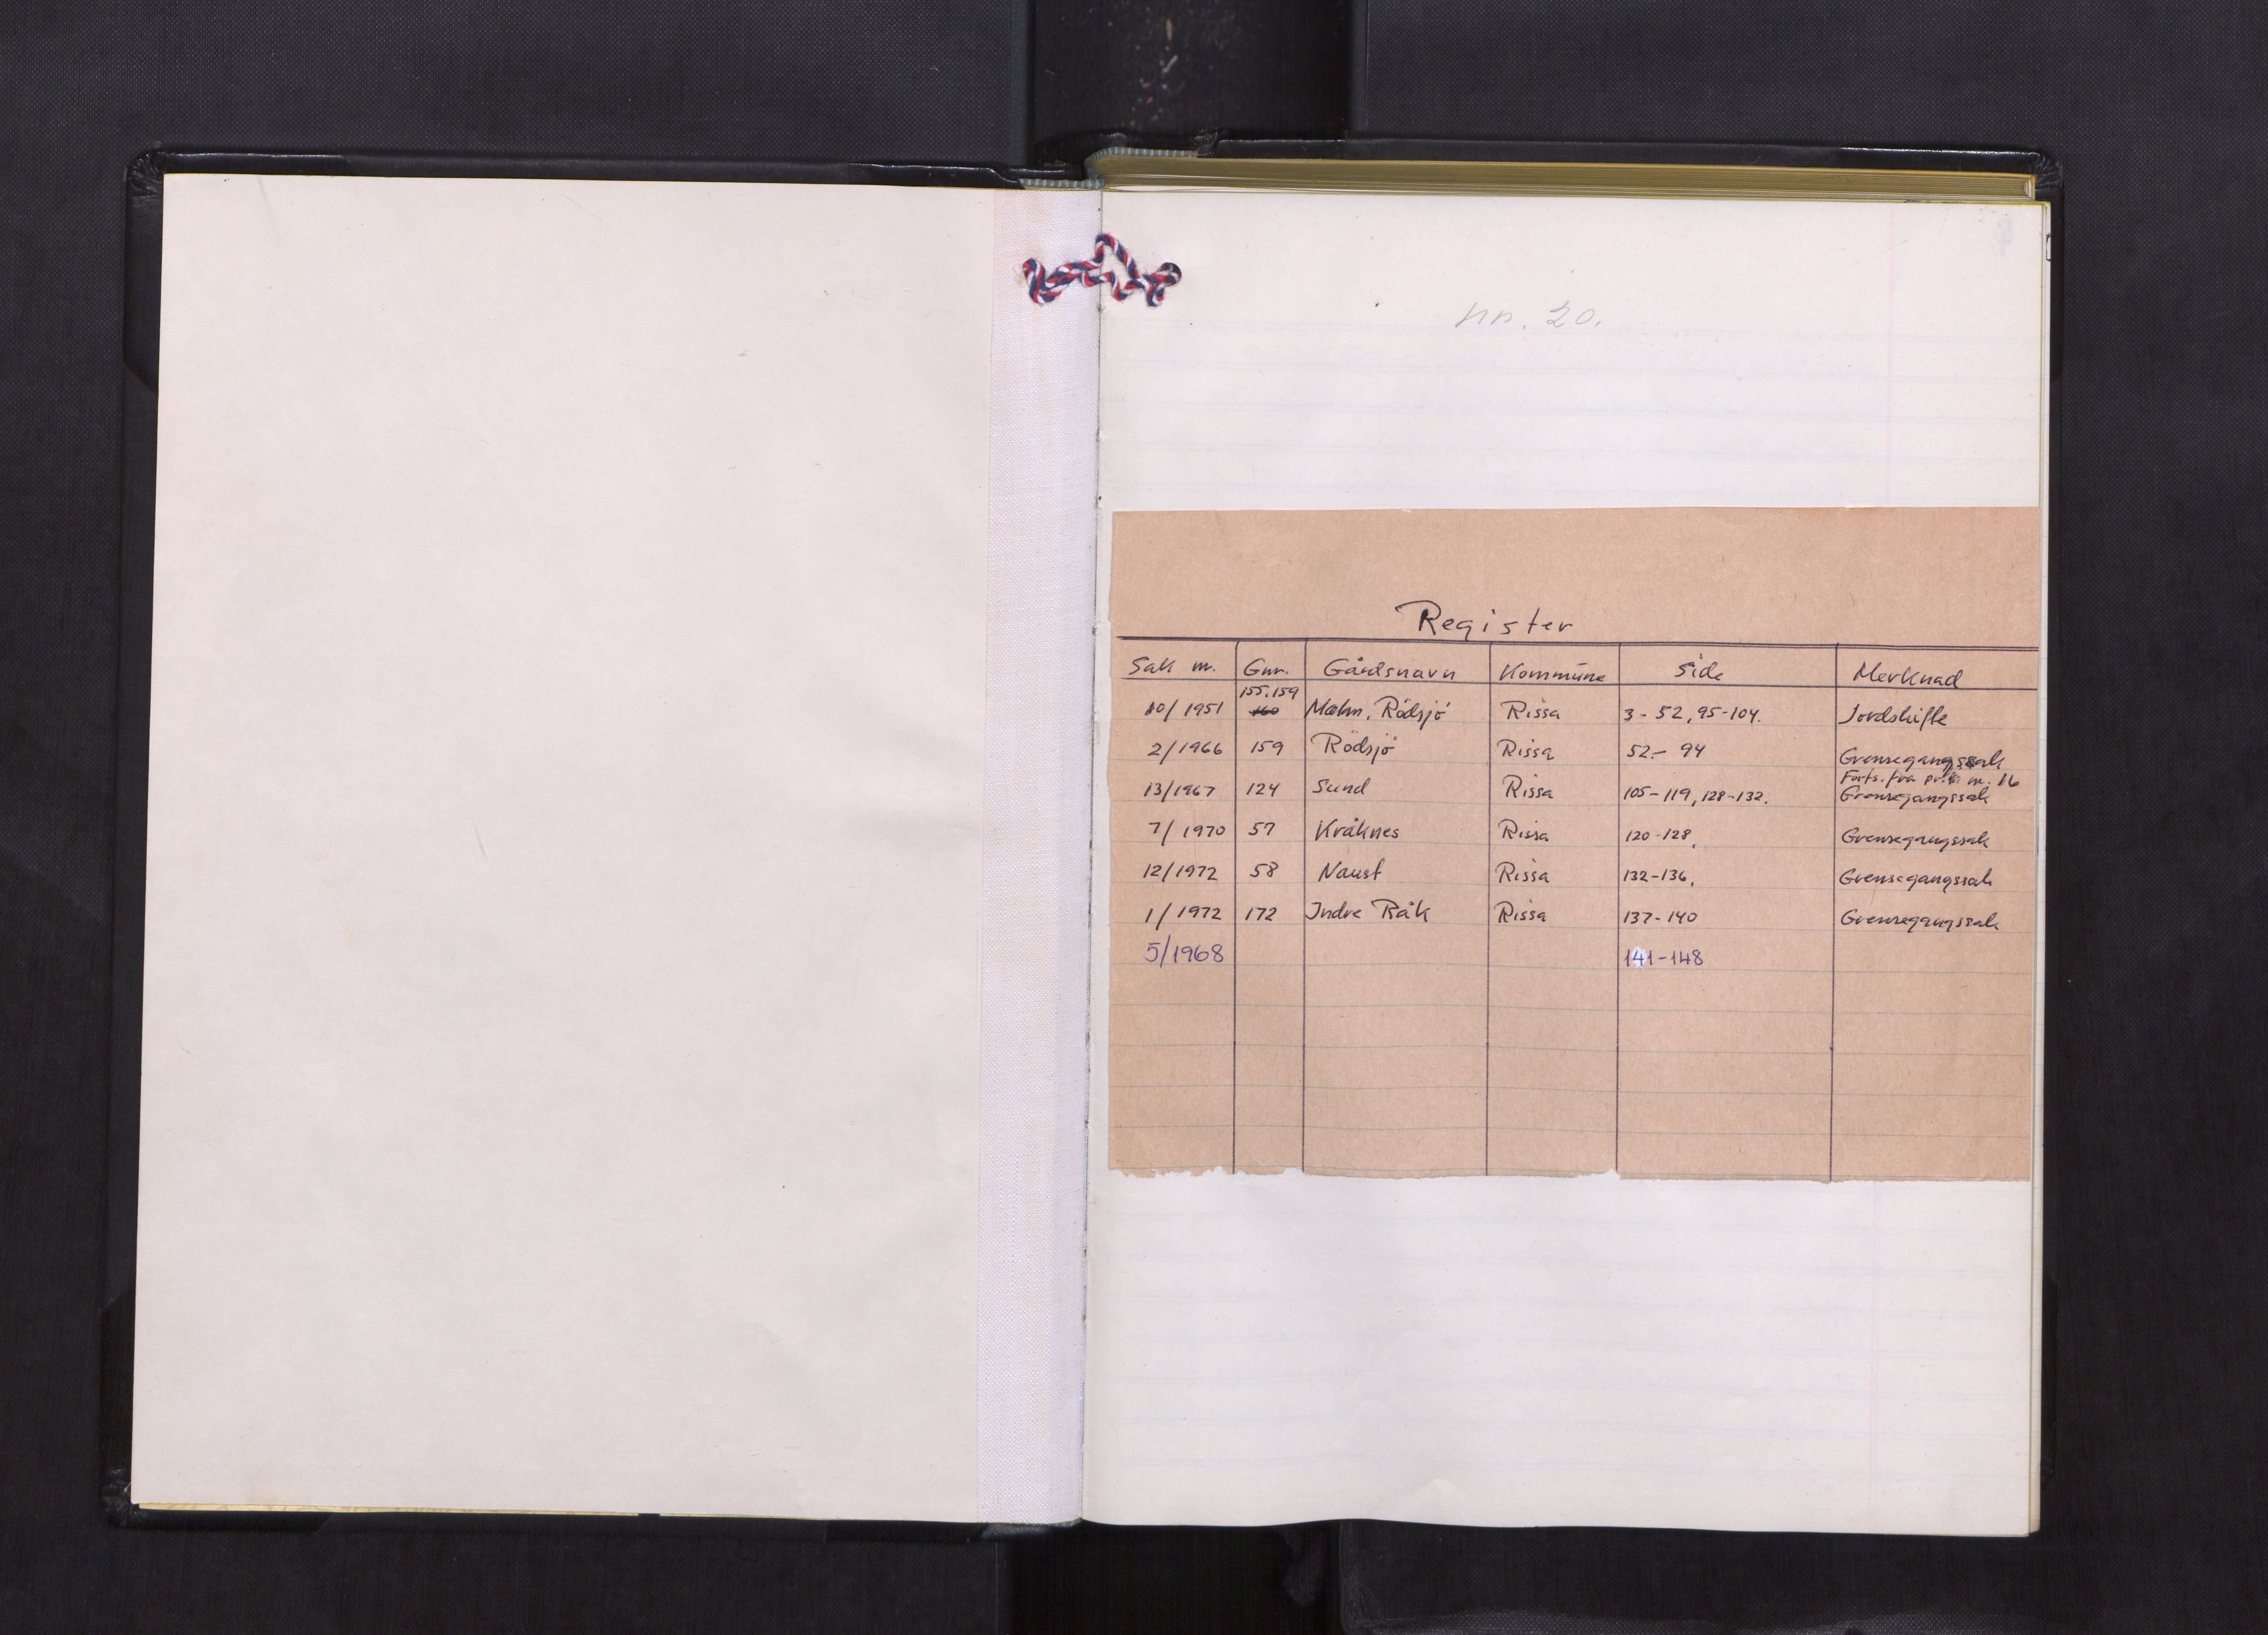 nr. 20.
Register
Sak nr. Gnr. Gårdsnavn Kommune Side Merknad
155, 159
10/1951 160 Mæhn, Rödsjö Rissa 3-52, 95-104. Jordskifte
2/1966 159 Rödsjö Rissa 52.- 94 Grensegangssak
Forts. fra nr. 16
13/1967 124 Sund Rissa 105-119, 128-132. Grensegangssak
7/1970 57 Kråknes Rissa 120-128. Grensegangssak
12/1972 58 Naust Rissa 132-136. Grensegangssak
1/1972 172 Indre Råk Rissa 137-140 Grensegangssak
5/1968 141-148